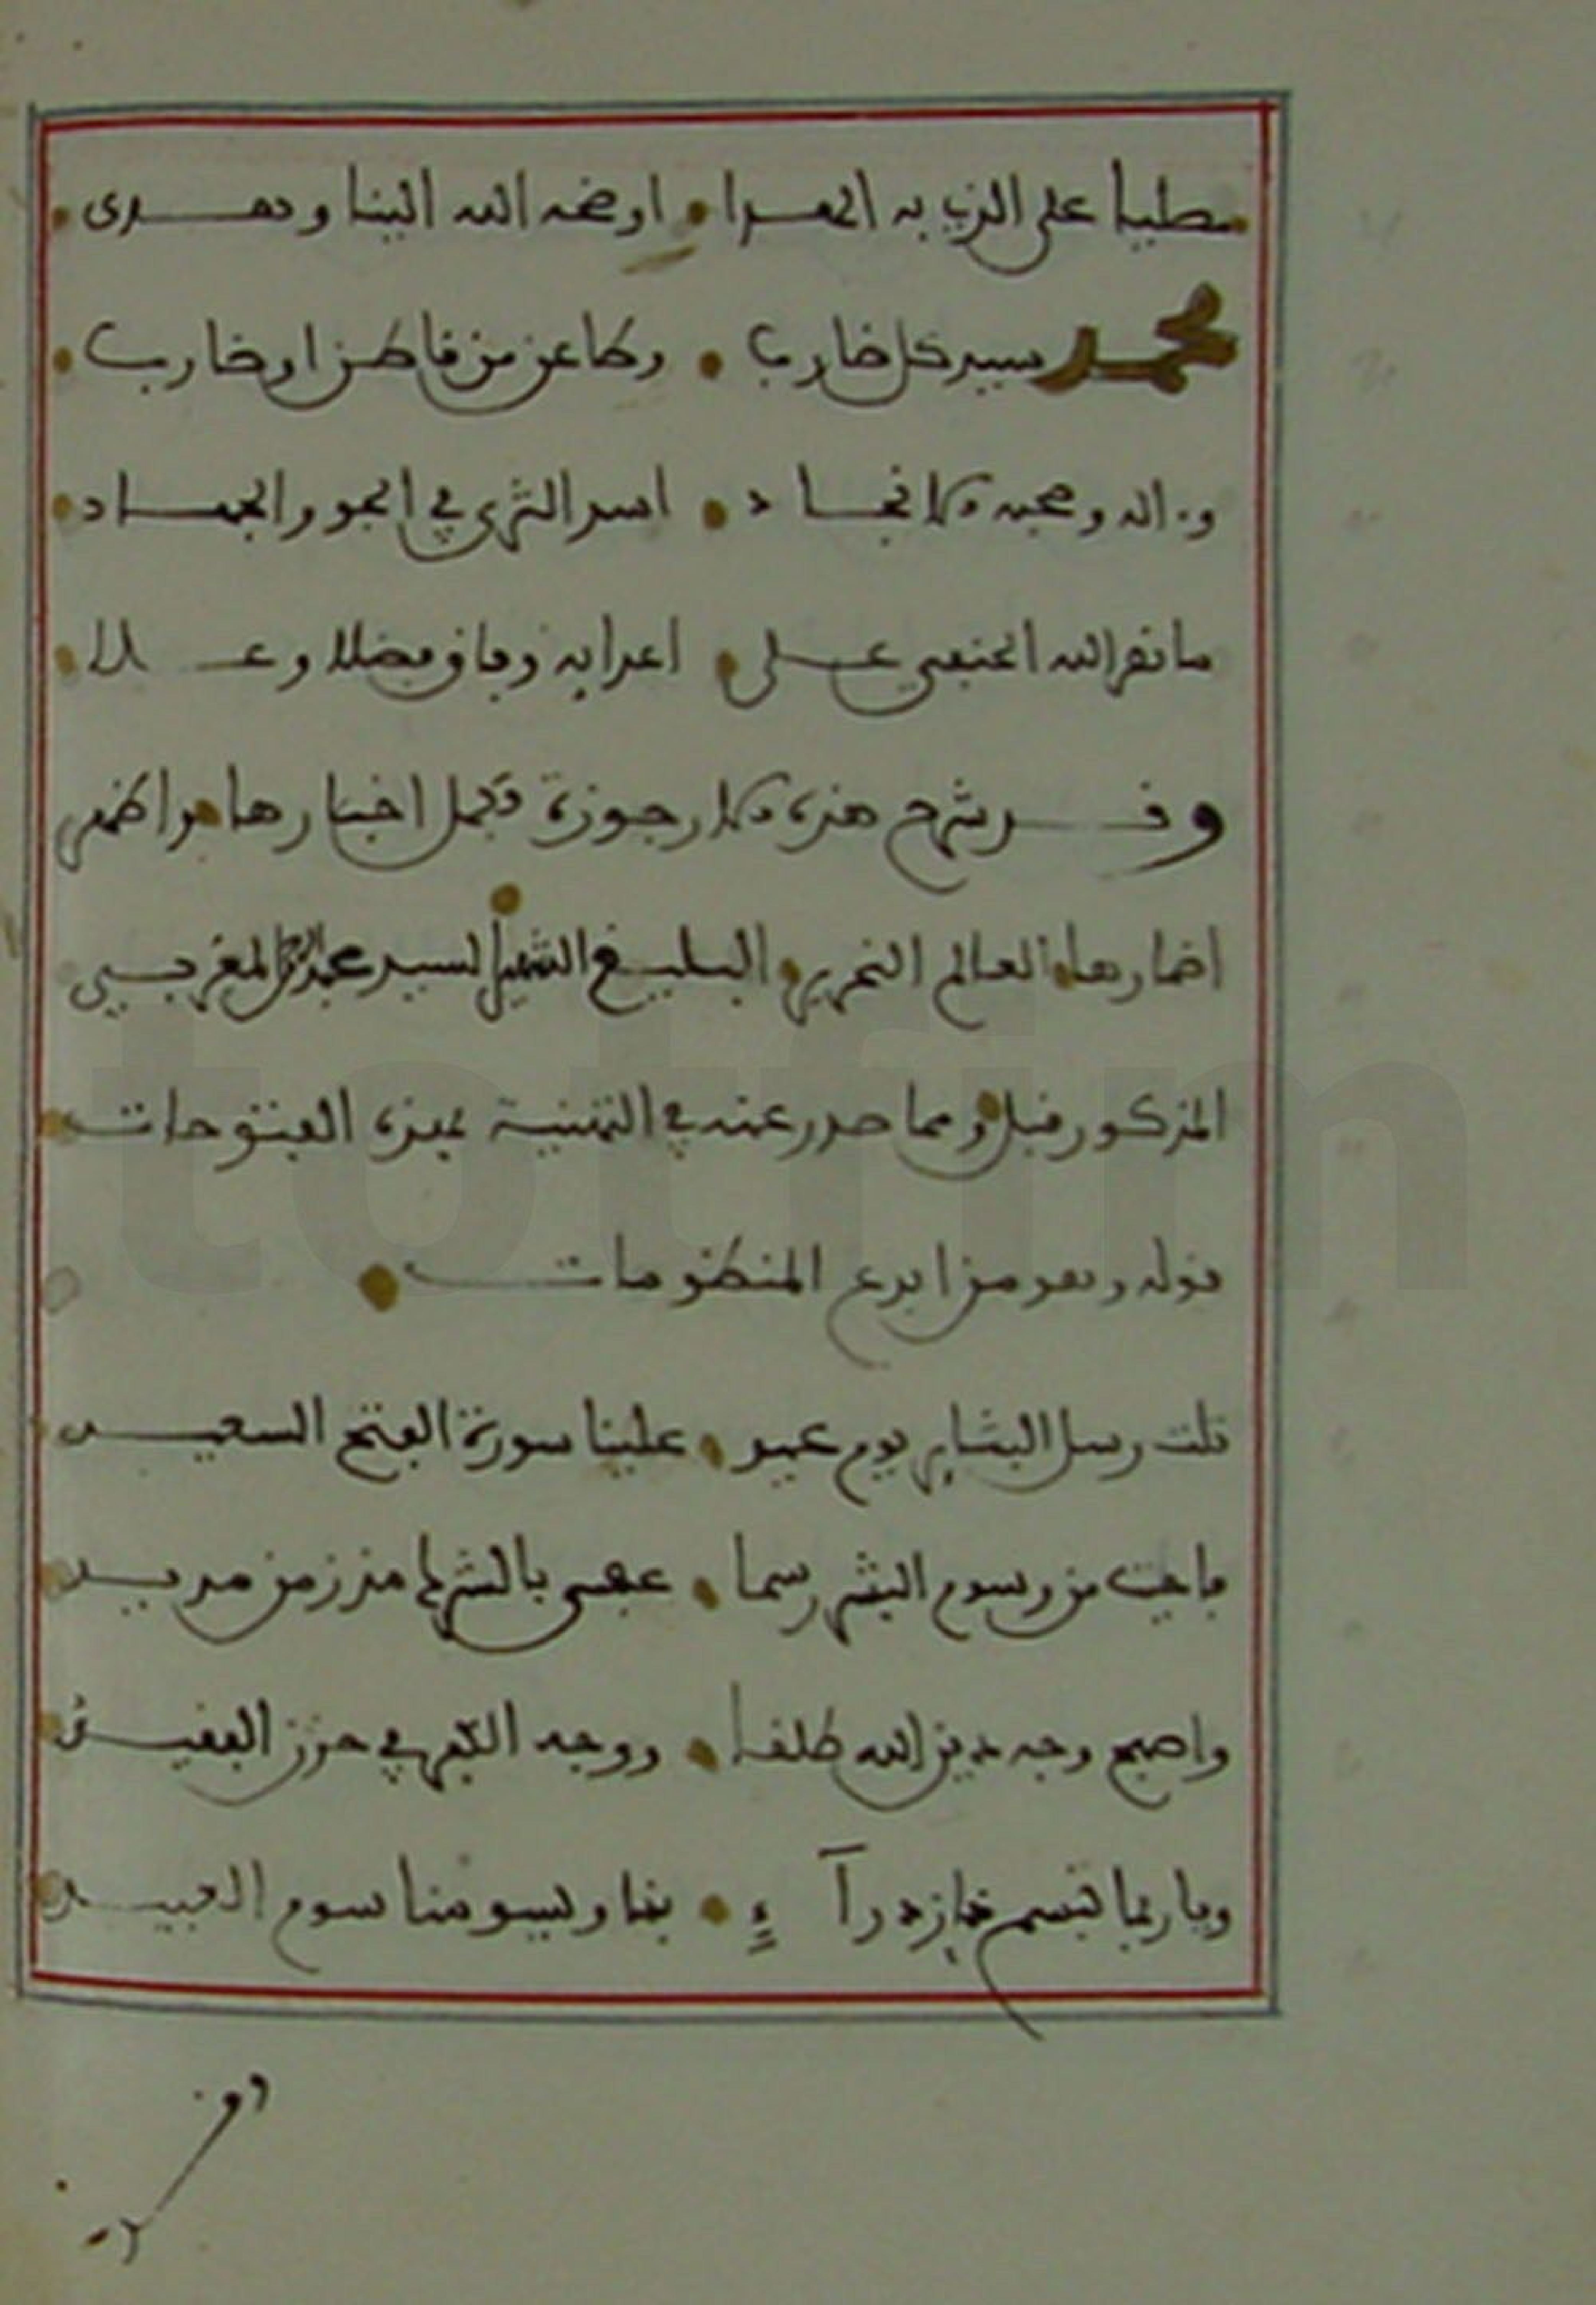 مصليا على الذي به الهدا • اوضحه الله الينا وهدى •
محمد سيد كل ضارب • وطاعن من قاطن او ضارب •
واله وصحبه الانجاد • اسد الشرى في الجود والجهاد •
ما نصر الله الحنيفي على • اعدايه وفاق فضلا وعلا •
وقد شرح هذه الارجوزة فجمل اخبارها واظهر
اضمارها العالم النحرير البليغ الشهير السيد المغربي
المذكور قبل ومما صدر عنه في التهنية بهذه الفتوحات •
قوله وهو من ابدع المنظومات •
تلت رسل البشاير يوم عيد • علينا سورة الفتح السعيد
فاحيت من رسوم البشر رسما • عفى بالشرك مذ زمن مديد
واصبح وجه دين الله طلقا • ووجه الكفر في حزن الفقيد
ويا ربما تبسم ازدراء • بنا ويسومنا سوم العبيد